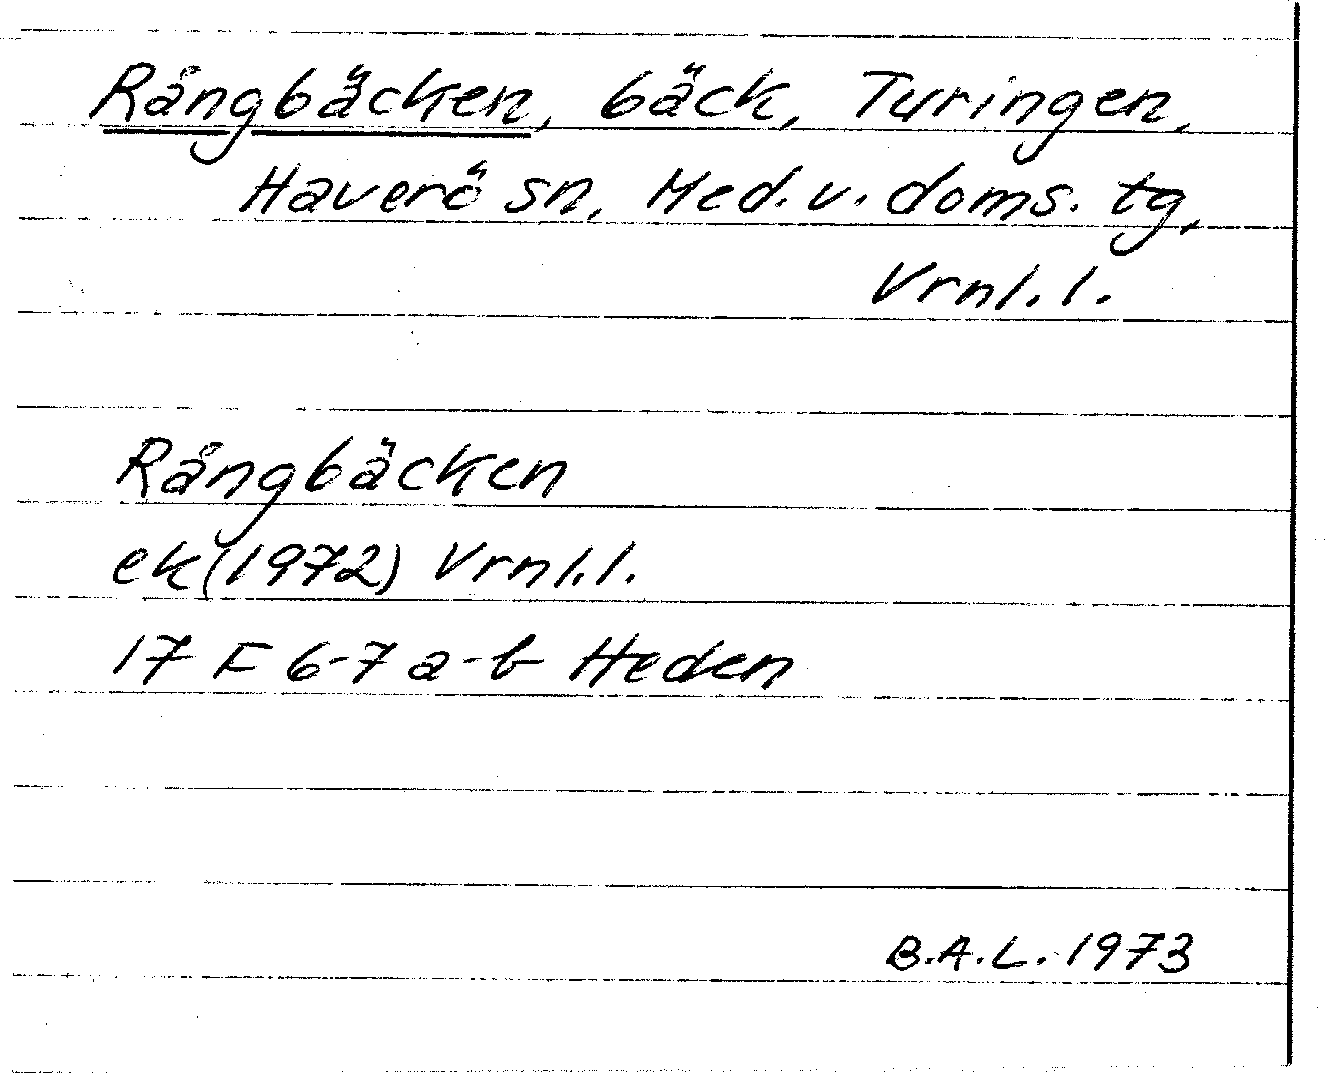 Rångbäcken, bäck, Turingen,
Haverö sn, Med. v. doms. tg,
Vrml. l.
Rångbäcken
ek (1972) Vrml. l.
17 F 6-7 a-b Heden
B.A.L. 1973